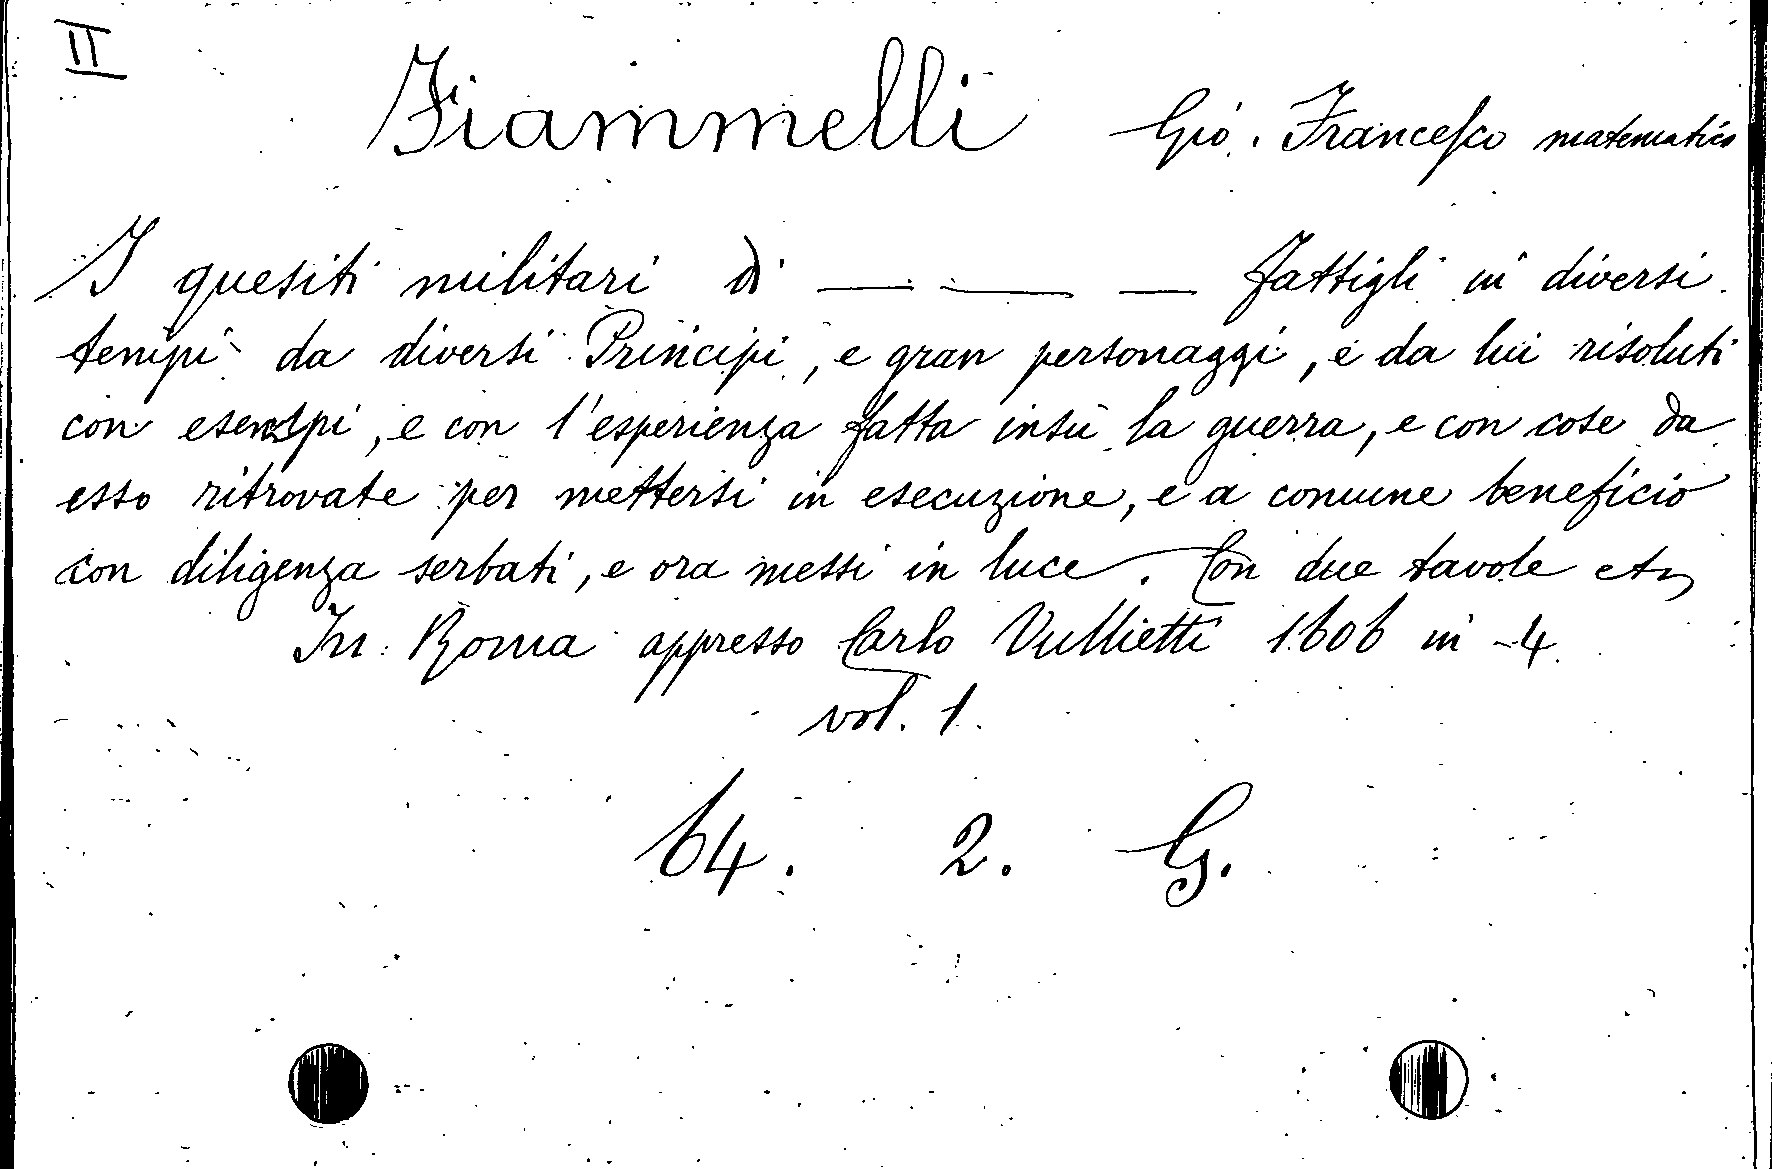 II
Fiammelli Gio. Francesco matematico
I quesiti militari di — — — fattigli in diversi
tempi da diversi Principi, e gran personaggi, e da lui risoluti
con esempi, e con l'esperienza fatta insù la guerra, e con cose da
esso ritrovate per mettersi in esecuzione, e a comune beneficio
con diligenza serbati, e ora messi in luce. Con due tavole etc
In Roma appresso Carlo Vullietti 1606 in-4
vol. 1.
64. 2. G.